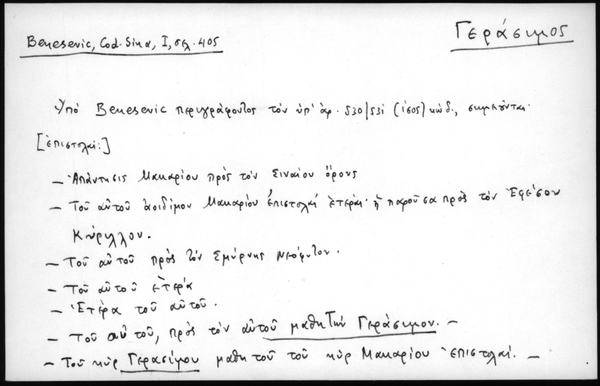 Benesevic, Cod. Sina, I, σελ. 405
Γεράσιμος
Ὑπό Benesevic περιγράφοντος τόν ὑπ' ἀρ. 530/531 (ἰσος) κώδ., σημειοῦνται
[ἐπιστολαί:]
— Ἀπάντησις Μακαρίου πρός τόν Σιναίου ὄρους
— Τοῦ αὐτοῦ ἀοιδίμου Μακαρίου ἐπιστολαί ἕτεραι· ἡ παροῦσα πρός τόν Ἐφέσου
Κύριλλον.
— Τοῦ αὐτοῦ πρός τόν Σμύρνης Νεόφυτον.
— Τοῦ αὐτοῦ ἑτέρα
— Ἑτέρα τοῦ αὐτοῦ.
— Τοῦ αὐτοῦ, πρός τόν αὐτοῦ μαθητήν Γεράσιμον. —
— Τοῦ κύρ Γερασίμου μαθητοῦ τοῦ κύρ Μακαρίου ἐπιστολαί. —